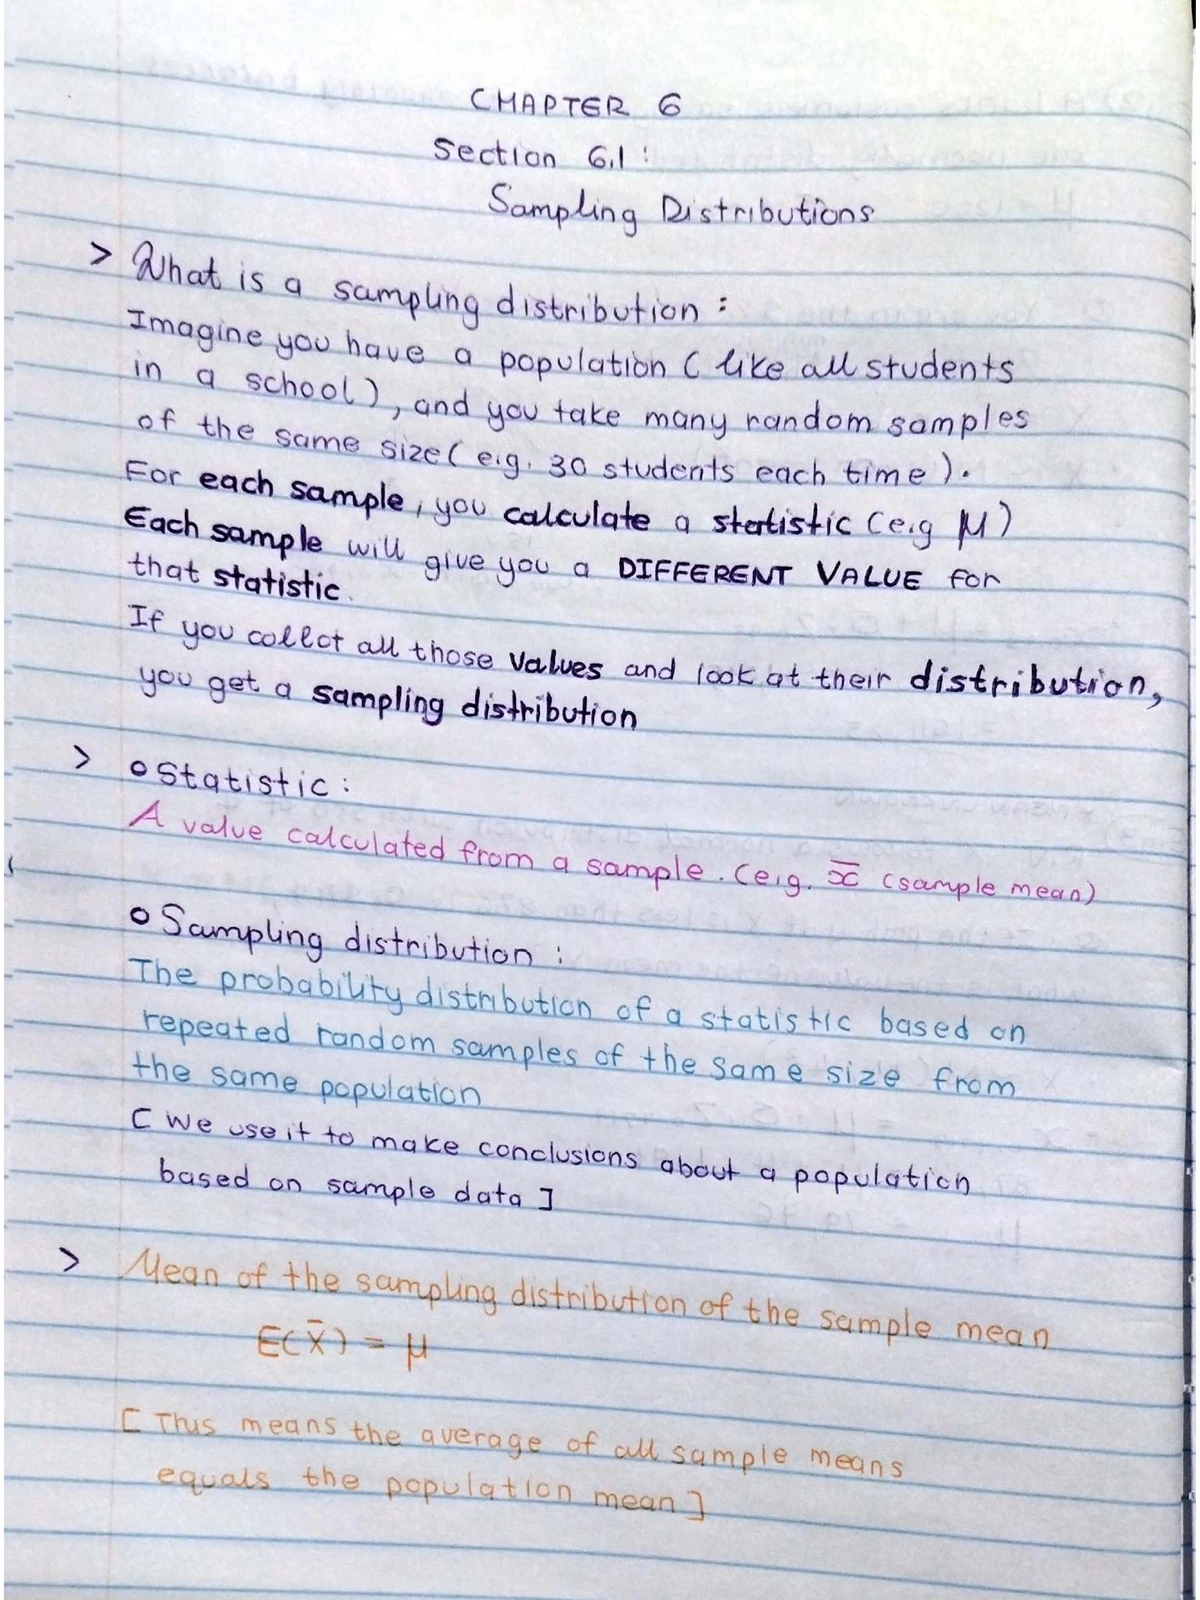 CHAPTER 6
Section 6.1:
Sampling Distributions
> What is a sampling distribution:
Imagine you have a population (like all students
in a school), and you take many random samples
of the same size (e.g. 30 students each time).
For each sample, you calculate a statistic (e.g μ)
Each sample will give you a DIFFERENT VALUE for
that statistic.
If you collct all those values and look at their distribution,
you get a sampling distribution
> o Statistic:
A value calculated from a sample. (e.g. x̄ (sample mean)
o Sampling distribution:
The probability distribution of a statistic based on
repeated random samples of the same size from
the same population
[We use it to make conclusions about a population
based on sample data]
> Mean of the sampling distribution of the sample mean
E(X̄) = μ
[This means the average of all sample means
equals the population mean]